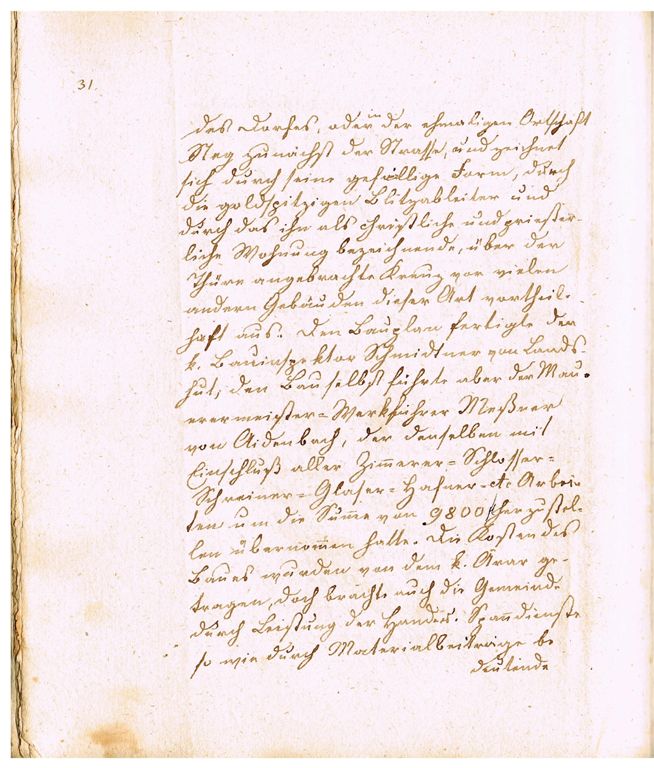 31.
des Dorfes, oder in der ehmaligen Ortschaft
Steg zunächst der Strasse, und zeichnet
sich durch seine gefällige Form, durch
die goldspitzigen Blitzableiter und
durch das ihn als christliche und priester-
liche Wohnung bezeichnende, über der
Thüre angebrachte Kreuz vor vielen
andern Gebäuden dieser Art vortheil-
haft aus. Den Bauplan fertigte der
k. Bauinspektor Schmidtner von Lands-
hut, den Bau selbst führte aber der Mau-
erermeister-Werkführer Meßner
von Aidenbach, der denselben mit
Einschluß aller Zimmerer- Schlosser-
Schreiner- Glaser- Hafner- etc Arbei-
ten um die Summe von 9800 f herzustel-
len übernommen hatte. Die Kosten des
Baues wurden von dem k. Ärar ge-
tragen, doch brachte auch die Gemeinde
durch Leistung der Hand u. Spanndienste
so wie durch Materialbeiträge be
deutende